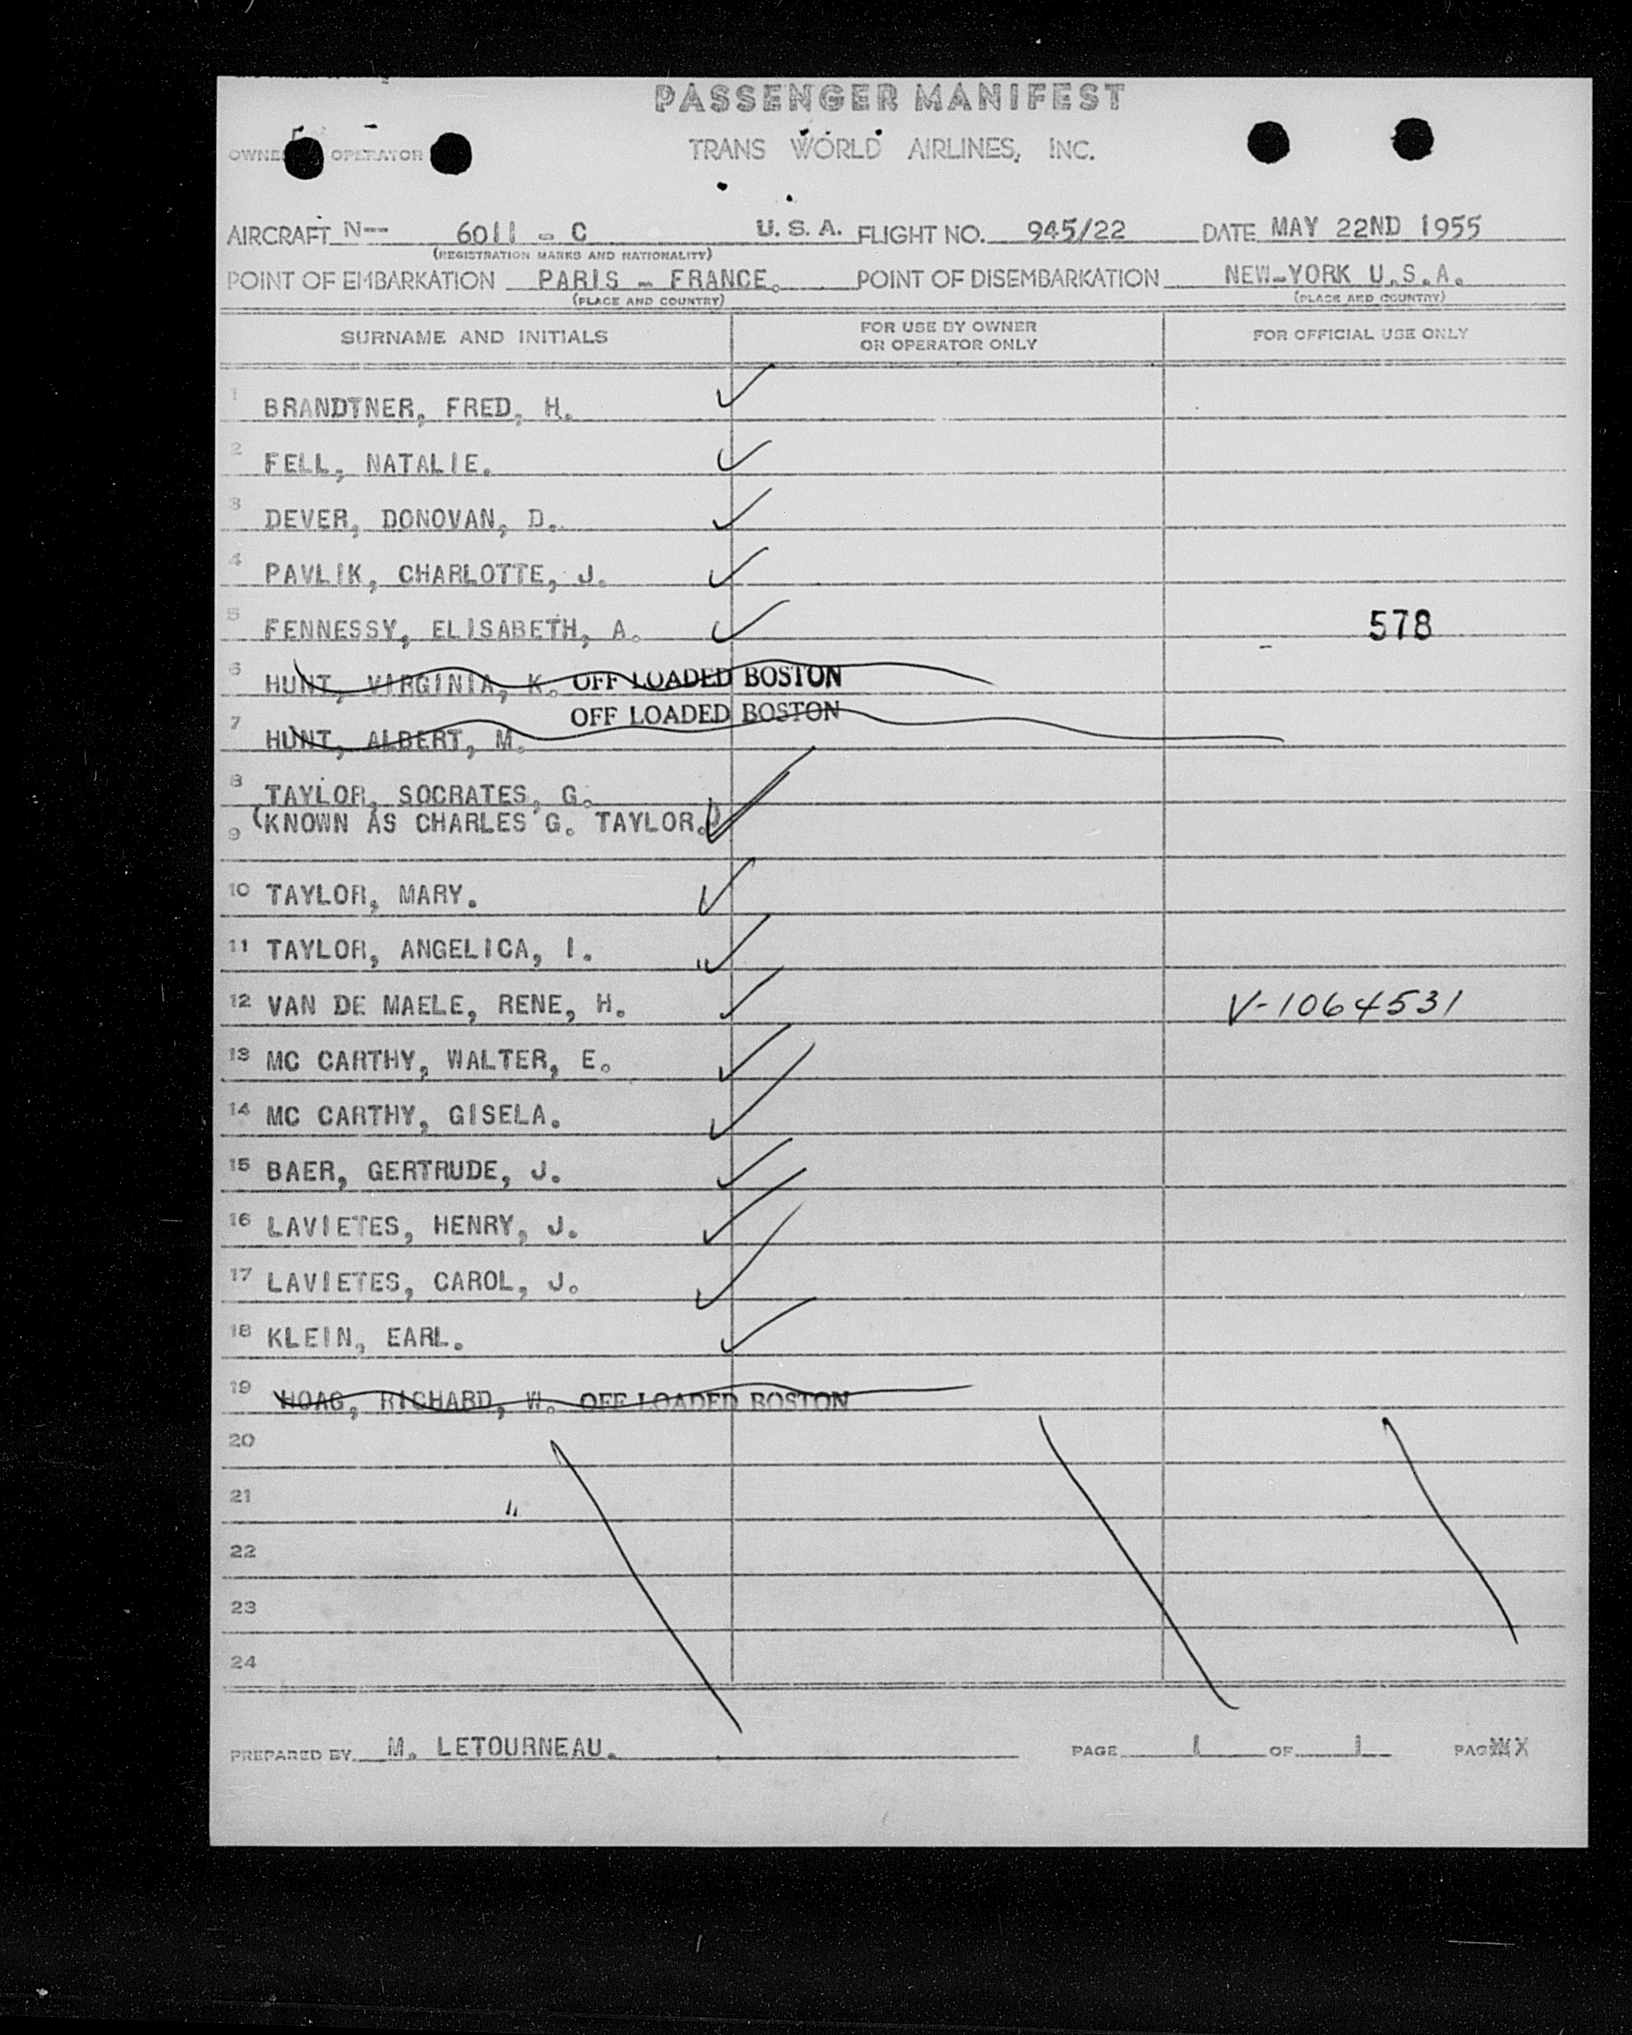 PASSENGER MANIFEST
OPERATOR TRANS WORLD AIRLINES, INC.
AIRCRAFT N-- 6011 - C U.S.A. FLIGHT NO. 945/22 DATE MAY 22ND 1955
(REGISTRATION MARKS AND NATIONALITY)
POINT OF EMBARKATION PARIS - FRANCE. POINT OF DISEMBARKATION NEW-YORK U.S.A.
(PLACE AND COUNTRY) (PLACE AND COUNTRY)
SURNAME AND INITIALS FOR USE BY OWNER OR OPERATOR ONLY FOR OFFICIAL USE ONLY
1 BRANDTNER, FRED, H.
2 FELL, NATALIE.
3 DEVER, DONOVAN, D.
4 PAVLIK, CHARLOTTE, J.
5 FENNESSY, ELISABETH, A. 578
6 HUNT, VIRGINIA, K. OFF LOADED BOSTON
OFF LOADED BOSTON
7 HUNT, ALBERT, M.
8 TAYLOR, SOCRATES, G.
9 (KNOWN AS CHARLES G. TAYLOR.)
10 TAYLOR, MARY.
11 TAYLOR, ANGELICA, I.
12 VAN DE MAELE, RENE, H. V-1064531
13 MC CARTHY, WALTER, E.
14 MC CARTHY, GISELA.
15 BAER, GERTRUDE, J.
16 LAVIETES, HENRY, J.
17 LAVIETES, CAROL, J.
18 KLEIN, EARL.
19 HOAG, RICHARD, W. OFF LOADED BOSTON
20
21
22
23
24
PREPARED BY M. LETOURNEAU. PAGE 1 OF 1